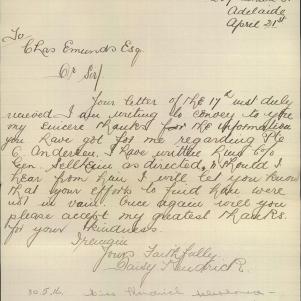 Adelaide
April 21st
To
Chas Emunds Esq.
Dr Sir/
Your letter of the 17th inst duly
received I am writing to convey to you
my sincere thanks for the information
you have got for me regarding Pte
C Andersen, I have written to
Gen. Sellheim as directed, & should I
hear from him I will let you know
that your efforts to find him were
not in vain. Once again will you
please accept my greatest thanks
for your kindness.
I remain
Yours Faithfully
Daisy Kendrick.
30.5.16. Miss Kendrick